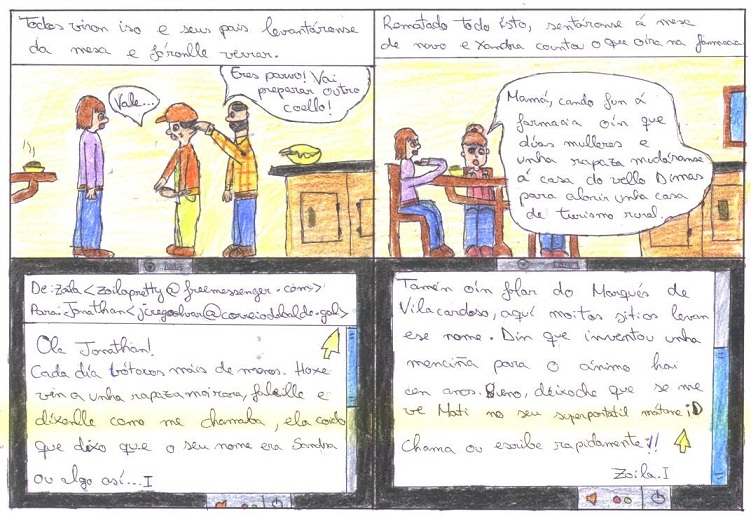 Todos viron iso e seus pais levantáronse
da mesa e fóronlle verrer.
Vale...
Eres parvo! Vai
preparar outro
coello!
Rematado todo isto, sentáronse á mesa
de novo e Xandra countou o que oíra na farmacia
Mamá, cando fun á
farmacia oín que
dúas mulleres e
unha rapaza mudáranse
á casa do vello Dimas
para abrir unha casa
de turismo rural...
De: Zoila <zoilapretty@freemessenger.com>
Para: Jonathan <@correiodobalde.gal>
Ola Jonathan!
Cada día bótovos mais de menos. Hoxe
vin a unha rapaza moi rara, faleille e
díxenlle como me chamaba, ela coido
que dixo que o seu nome era Sandra
ou algo así...I
Tamén oín falar do Marqués de
Vilacardoso, aquí moitos sitios levan
ese nome. Din que inventou unha
menciña para o ánimo hai
cen anos. Bueno, déixoche que se me
ve Mati no seu superportátil mátame ;D
Chama ou escribe rapidamente!!
Zoila.I